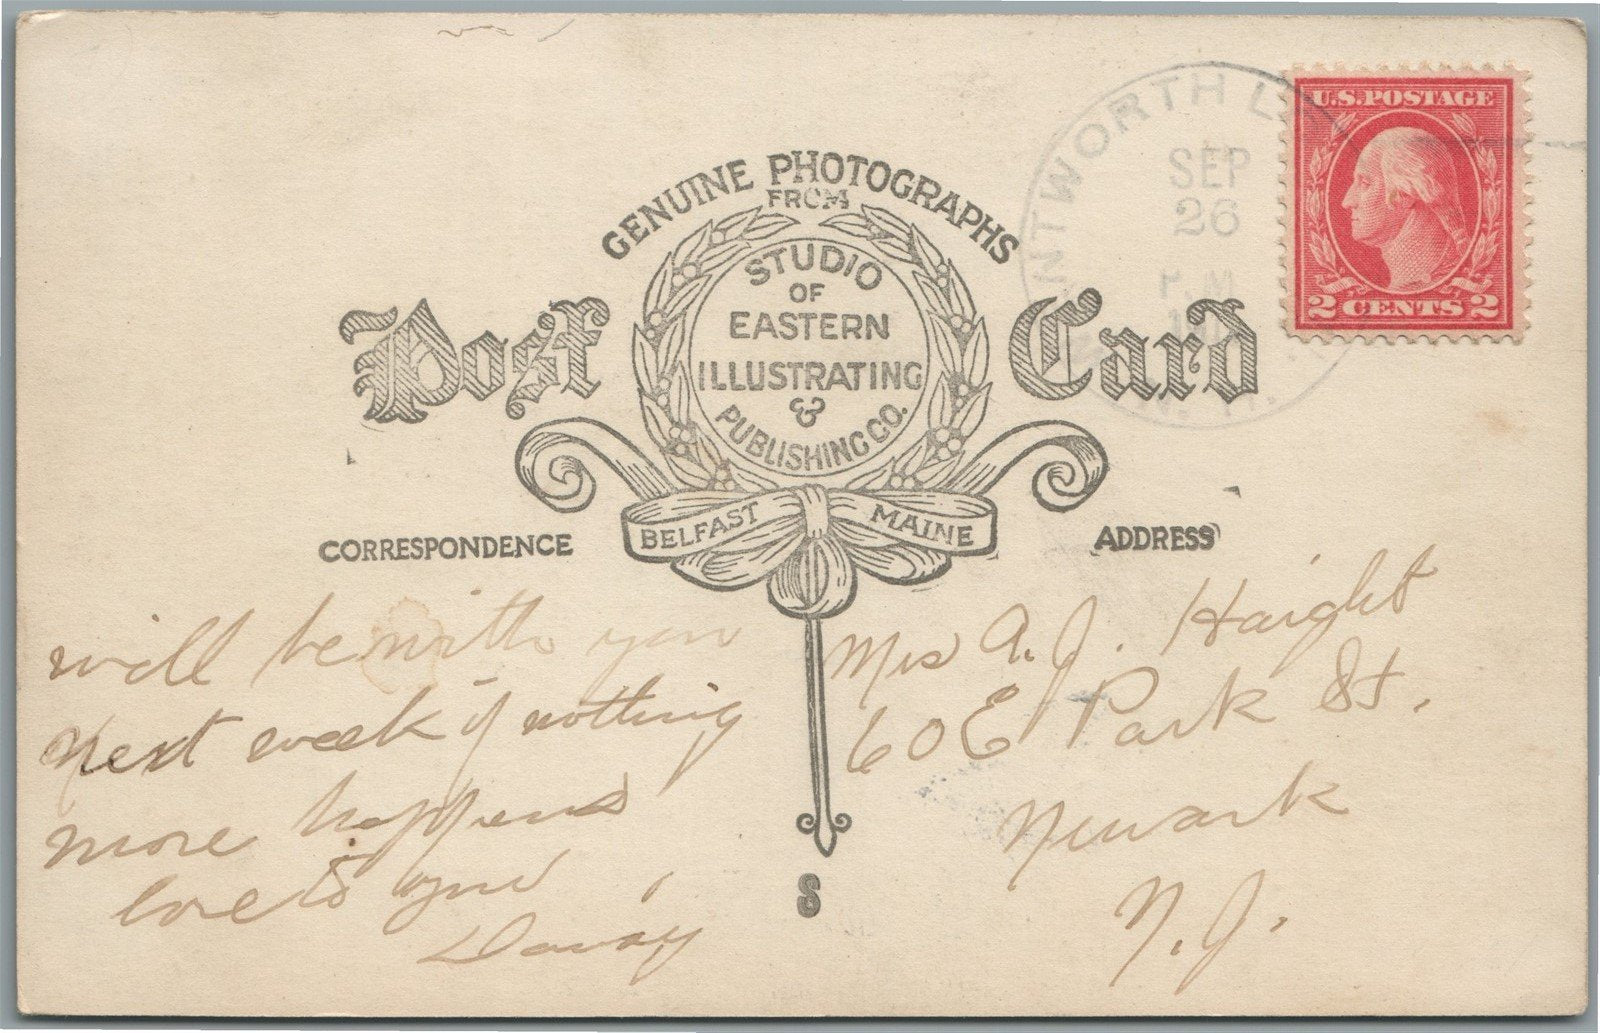 GENUINE PHOTOGRAPHS
FROM
STUDIO
OF
EASTERN
ILLUSTRATING
&
PUBLISHING CO.
Post Card
BELFAST MAINE
NTWORTH L
SEP
26
M
N. H.
U.S. POSTAGE
2 CENTS 2
CORRESPONDENCE
will be with you
next week if nothing
more happens
love to
S
ADDRESS
Mrs A. J. Haight
60 E Park St.
Newark
N. J.